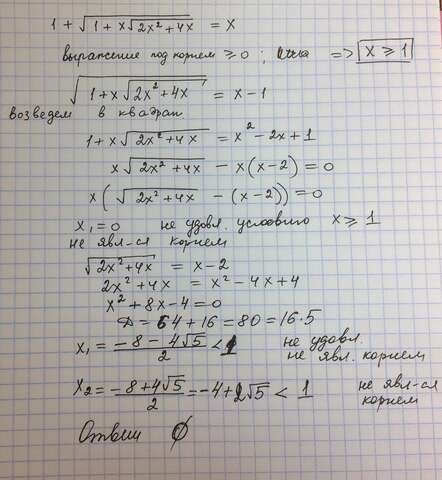 1 + √(1 + x√(2x² + 4x)) = x
выражение под корнем ≥ 0 ; => x ≥ 1
√(1 + x√(2x² + 4x)) = x - 1
возведем в квадрат
1 + x√(2x² + 4x) = x² - 2x + 1
x√(2x² + 4x) - x(x-2) = 0
x(√(2x² + 4x) - (x-2)) = 0
x₁ = 0 не удовл. условию x ≥ 1
не явл-ся корнем
√(2x² + 4x) = x - 2
2x² + 4x = x² - 4x + 4
x² + 8x - 4 = 0
D = 64 + 16 = 80 = 16·5
x₁ = (-8 - 4√5)/2 < 1 не удовл.
не явл. корнем
x₂ = (-8 + 4√5)/2 = -4 + 2√5 < 1 не явл-ся
корнем
Ответ ∅